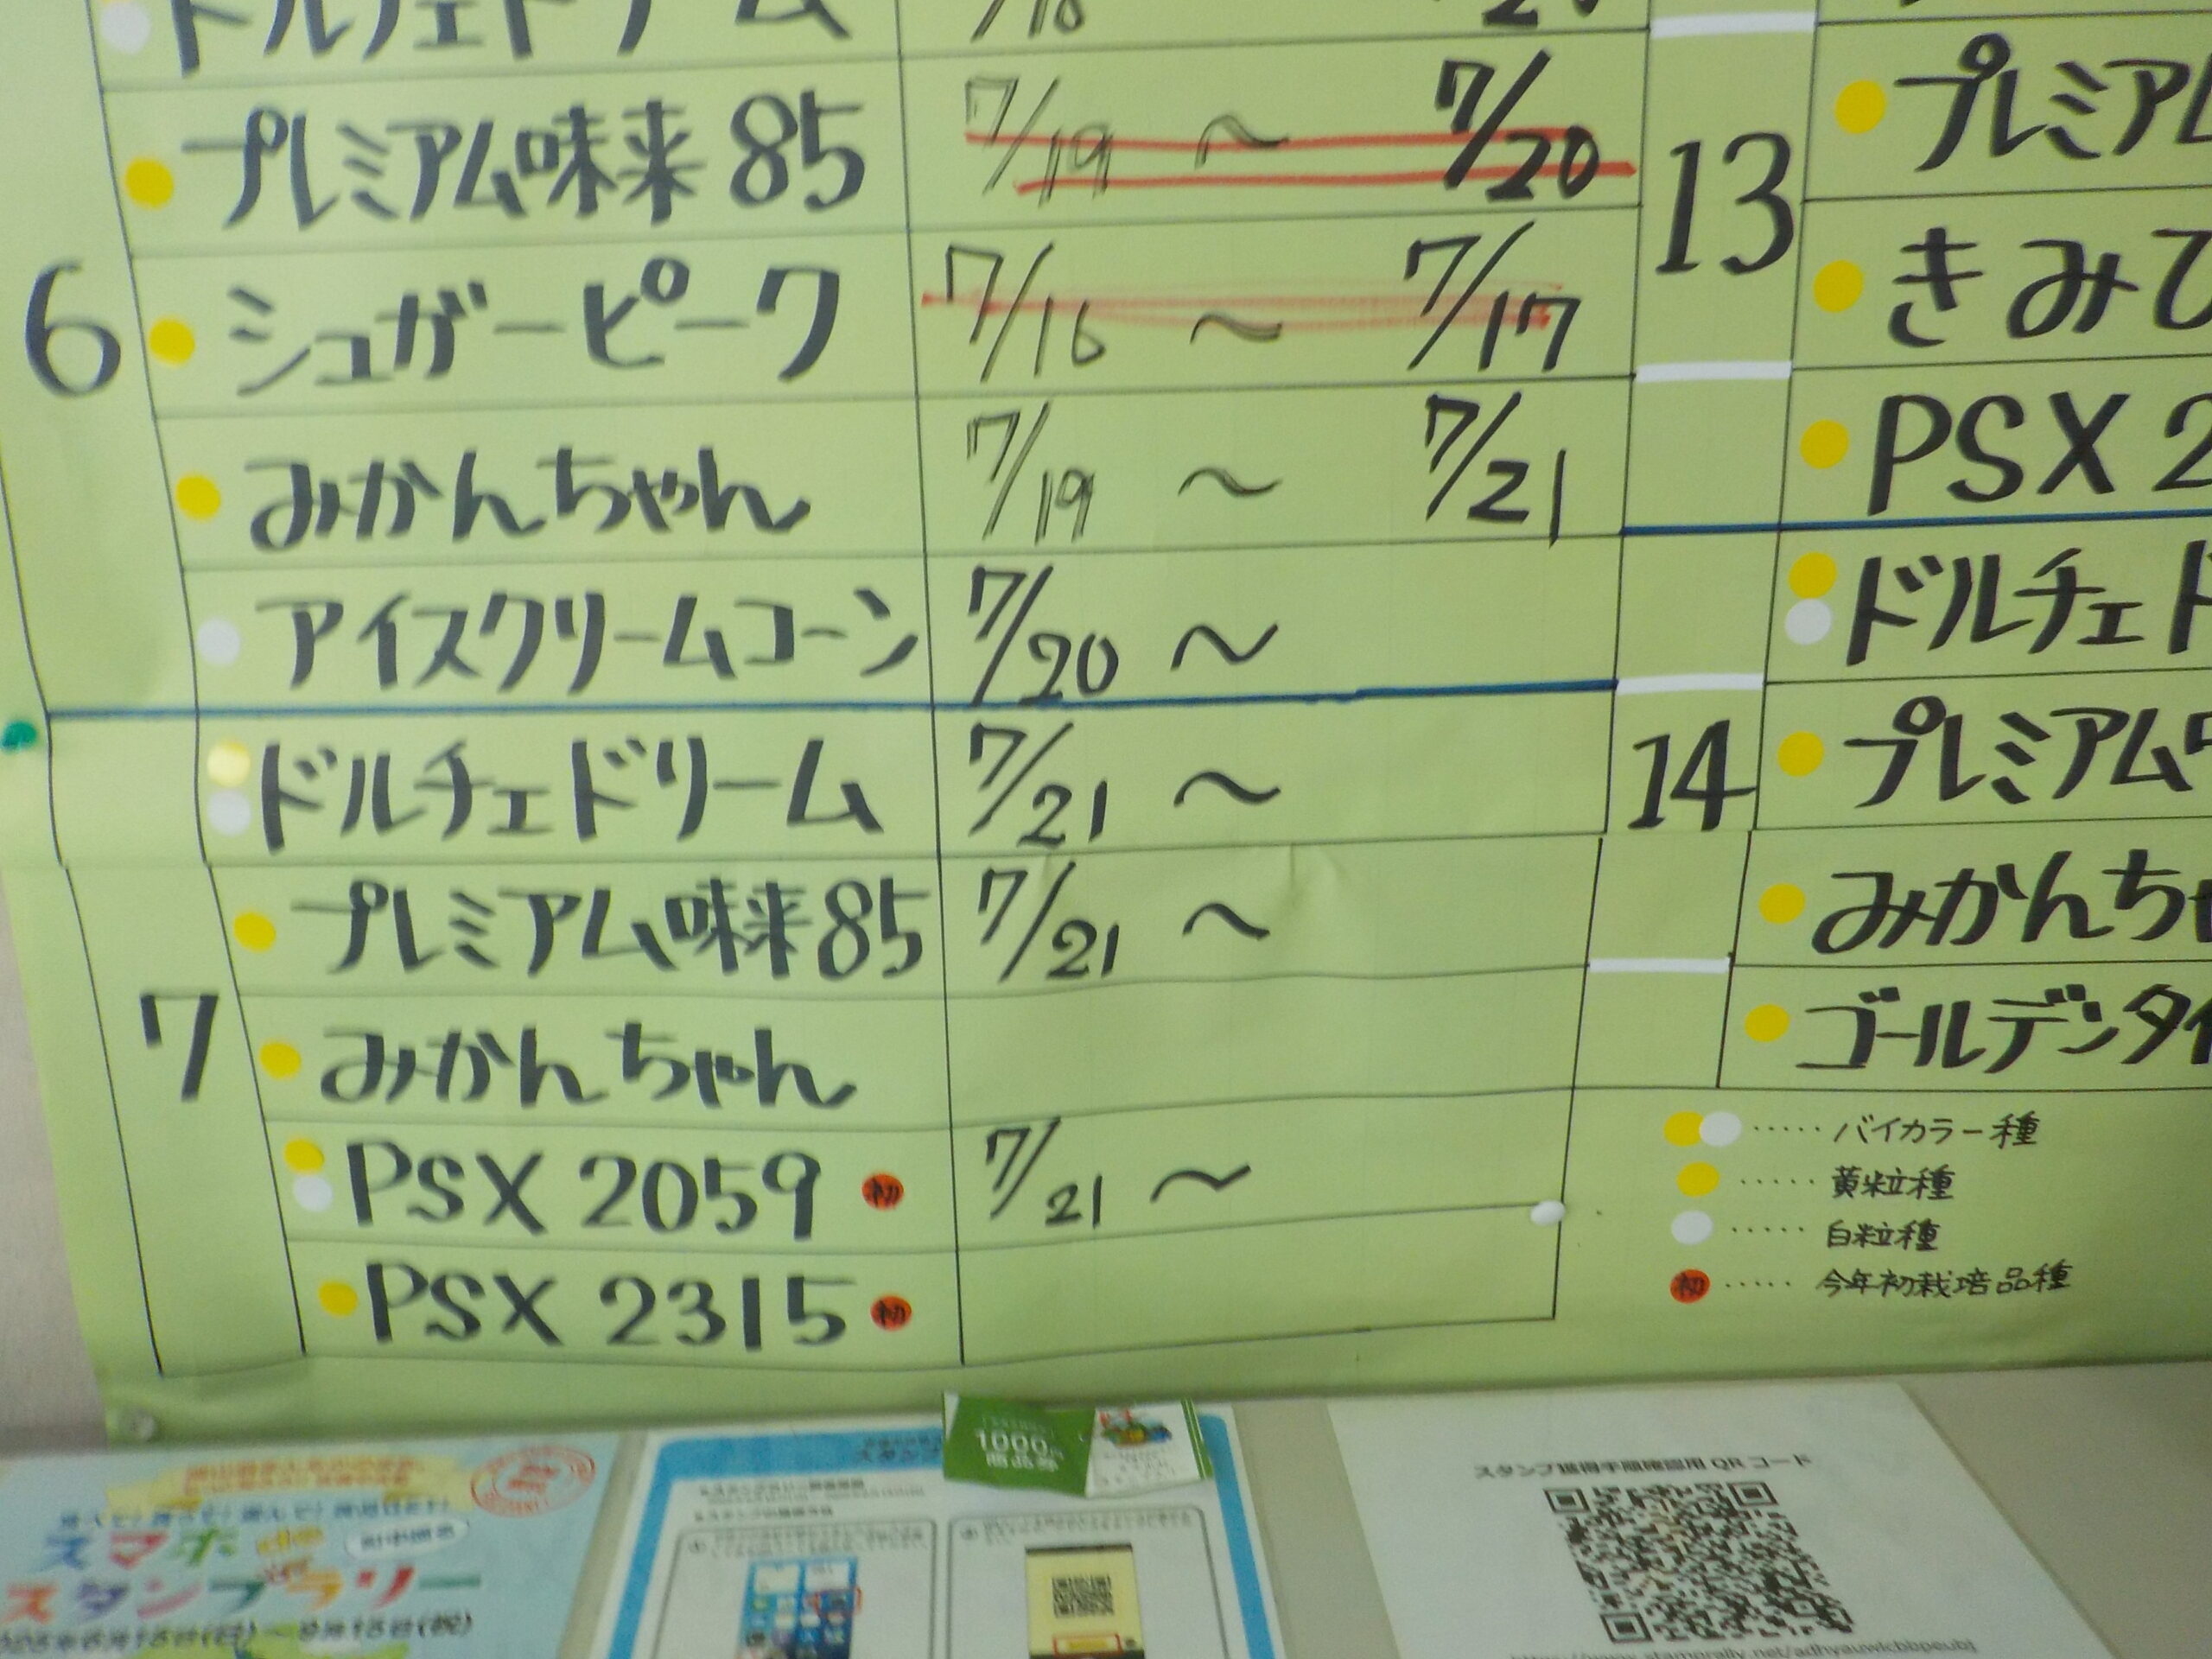 ドルチェドリーム 7/18
6
プレミアム味来 85 7/19 ～ 7/20
シュガーピーク 7/16 ～ 7/17
みかんちゃん 7/19 ～ 7/21
アイスクリームコーン 7/20 ～
7
ドルチェドリーム 7/21 ～
プレミアム味来85 7/21 ～
みかんちゃん
PSX 2059 初 7/21 ～
PSX 2315 初
13
プレミアム
きみひ
PSX 2
14
ドルチェド
プレミアム
みかんちゃ
ゴールデンタイ
‥‥‥ バイカラー種
‥‥‥ 黄粒種
‥‥‥ 白粒種
初 ‥‥‥ 今年初栽培品種
スマホ de
スタンプラリー
1000
商品券
スタンプ獲得手順確認用 QR コード